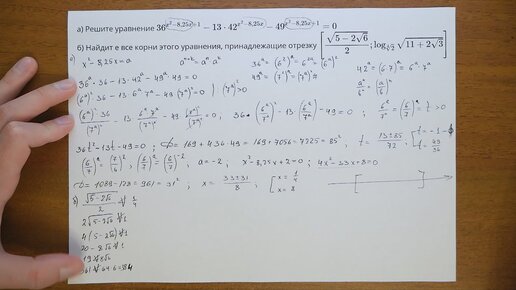 а) Решите уравнение 36^(x²−8,25x)+1 − 13·42^(x²−8,25x) − 49^(x²−8,25x)+1 = 0
б) Найдите все корни этого уравнения, принадлежащие отрезку [√(5−2√6)/2; log √(11+2√3)]
а) x² − 8,25x = a
36^a·36 − 13·42^a − 49^a·49 = 0
36^a = (6²)^a = 6^2a = (6^a)²
49^a = (7²)^a = (7^a)²
42^a = (6·7)^a = 6^a·7^a
(6^a)²·36 − 13·6^a·7^a − 49(7^a)² = 0 | : (7^a)² > 0
(6^a)²·36/(7^a)² − 13·6^a·7^a/(7^a)² − 49(7^a)²/(7^a)² = 0; 36·(6^a/7^a)² − 13(6^a/7^a) − 49 = 0; 6^a/7^a = (6/7)^a = t > 0
36t² − 13t − 49 = 0; D = 169 + 4·36·49 = 169 + 7056 = 7225 = 85²; t = (13±85)/72; t = −1 − ∅
t = 49/36
(6/7)^a = (7/6)²; (6/7)^a = (6/7)^−2; a = −2, x² − 8,25x + 2 = 0; 4x² − 33x + 8 = 0
D = 1089 − 128 = 961 = 31²; x = (33±31)/8; [x = 1/4
x = 8
б) √(5−2√6)/2 ∨ 1/4
2√(5−2√6) ∨ 1
4(5−2√6) ∨ 1
20 − 8√6 ∨ 1
19 ∨ 8√6
361 ∨ 64·6 = 384